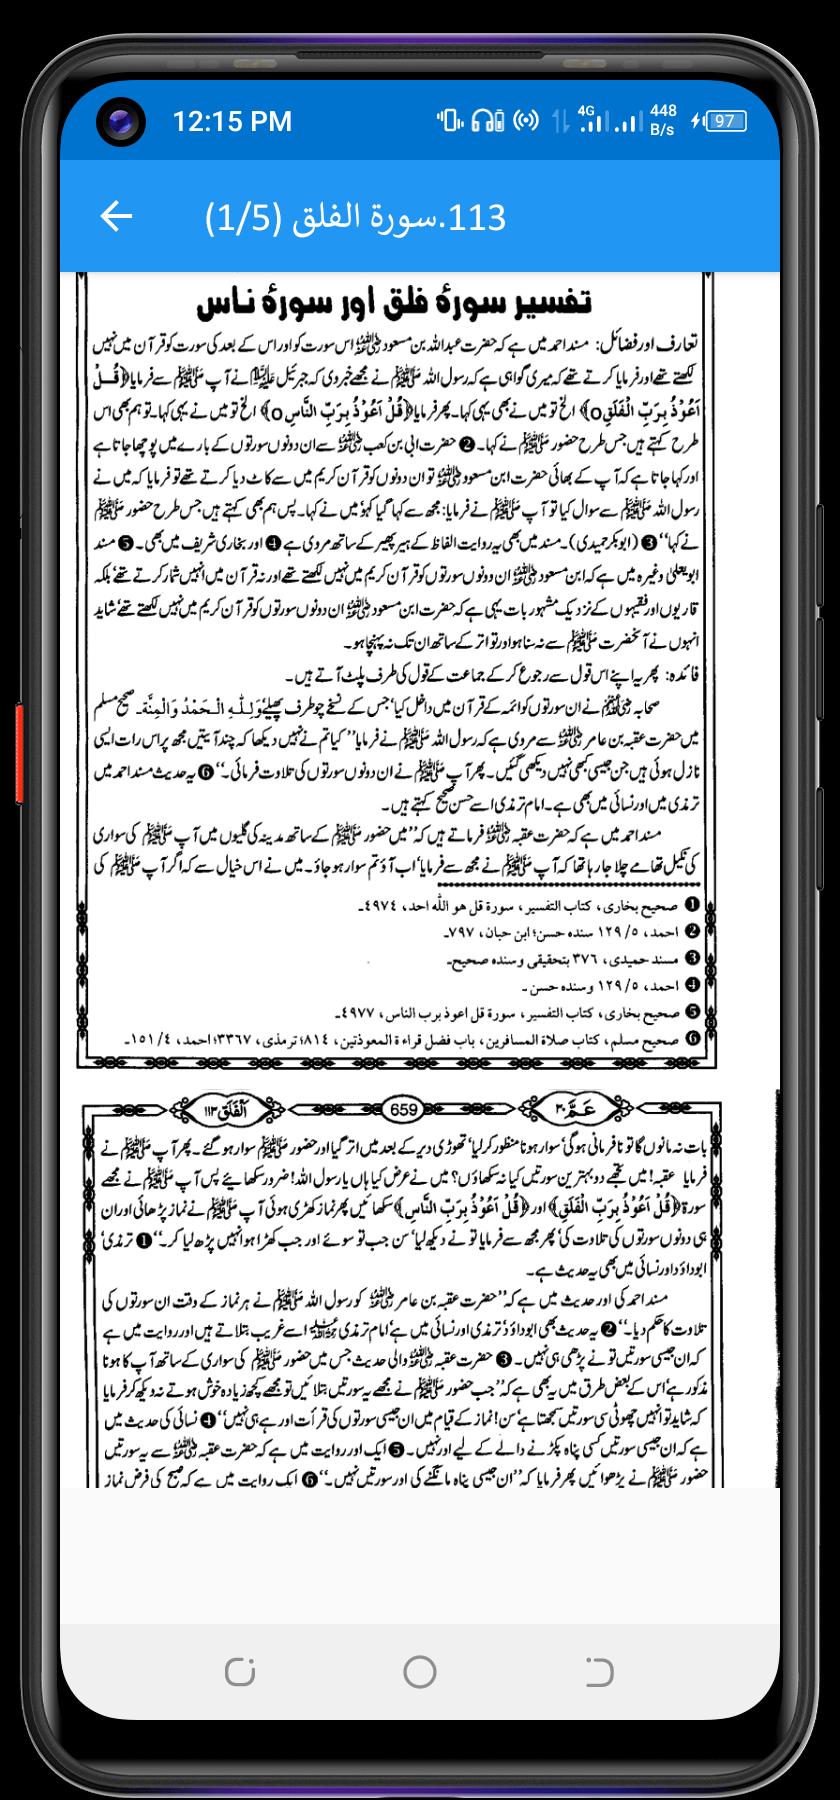 12:15 PM
4G
448
B/s
97
113.سورة الفلق (1/5)
تفسیر سورۂ فلق اور سورۂ ناس
تعارف اور فضائل: مسند احمد میں ہے کہ حضرت عبداللہ بن مسعود رضی اللہ عنہ اس سورت کو اور اس کے بعد کی سورت کو قرآن میں نہیں
لکھتے تھے اور فرمایا کرتے تھے کہ میری گواہی ہے کہ رسول اللہ ﷺ نے مجھے خبر دی کہ جبرئیل علیہ السلام نے آپ ﷺ سے فرمایا ﴿قُلْ
اَعُوْذُ بِرَبِّ الْفَلَقِo﴾ الخ تو میں نے بھی یہی کہا۔ پھر فرمایا ﴿قُلْ اَعُوْذُ بِرَبِّ النَّاسِo﴾ الخ تو میں نے یہی کہا۔ تو ہم بھی اس
طرح کہتے ہیں جس طرح حضور ﷺ نے کہا۔ ❷ حضرت ابی بن کعب رضی اللہ عنہ سے ان دونوں سورتوں کے بارے میں پوچھا جاتا ہے
اور کہا جاتا ہے کہ آپ کے بھائی حضرت ابن مسعود رضی اللہ عنہ تو ان دونوں کو قرآن کریم میں سے کاٹ دیا کرتے تھے تو فرمایا کہ میں نے
رسول اللہ ﷺ سے سوال کیا تو آپ ﷺ نے فرمایا: مجھ سے کہا گیا کہو' میں نے کہا۔ پس ہم بھی کہتے ہیں جس طرح حضور ﷺ
نے کہا'' ❸ (ابوبکر حمیدی)۔ مسند میں بھی یہ روایت الفاظ کے ہیر پھیر کے ساتھ مروی ہے ❹ اور بخاری شریف میں بھی۔ ❺ مسند
ابو یعلیٰ وغیرہ میں ہے کہ ابن مسعود رضی اللہ عنہ ان دونوں سورتوں کو قرآن کریم میں نہیں لکھتے تھے اور نہ قرآن میں انہیں شمار کرتے تھے' بلکہ
قاریوں اور فقیہوں کے نزدیک مشہور بات یہی ہے کہ حضرت ابن مسعود رضی اللہ عنہ ان دونوں سورتوں کو قرآن کریم میں نہیں لکھتے تھے' شاید
انہوں نے آنحضرت ﷺ سے نہ سنا ہو اور تواتر کے ساتھ ان تک نہ پہنچا ہو۔
فائدہ: پھر یہ اپنے اس قول سے رجوع کر کے جماعت کے قول کی طرف پلٹ آتے ہیں۔
صحابہ رضی اللہ عنہم نے ان سورتوں کو ائمہ کے قرآن میں داخل کیا' جس کے نسخے چوطرف پھیلے وَلِلّٰهِ الْحَمْدُ وَالْمِنَّة۔ صحیح مسلم
میں حضرت عقبہ بن عامر رضی اللہ عنہ سے مروی ہے کہ رسول اللہ ﷺ نے فرمایا'' کیا تم نے نہیں دیکھا کہ چند آیتیں مجھ پر اس رات ایسی
نازل ہوئی ہیں جن جیسی کبھی نہیں دیکھی گئیں۔ پھر آپ ﷺ نے ان دونوں سورتوں کی تلاوت فرمائی۔'' ❻ یہ حدیث مسند احمد میں
ترمذی میں اور نسائی میں بھی ہے۔ امام ترمذی اسے حسن صحیح کہتے ہیں۔
مسند احمد میں ہے کہ حضرت عقبہ رضی اللہ عنہ فرماتے ہیں کہ'' میں حضور ﷺ کے ساتھ مدینہ کی گلیوں میں آپ ﷺ کی سواری
کی نکیل تھامے چلا جا رہا تھا کہ آپ ﷺ نے مجھ سے فرمایا' اب آؤ تم سوار ہو جاؤ۔ میں نے اس خیال سے کہ اگر آپ ﷺ کی
❶ صحیح بخاری، کتاب التفسیر، سورۃ قل ھو اللّٰه احد، ٤٩٧٤۔
❷ احمد، ٥/ ١٢٩ سندہ حسن؛ ابن حبان، ٧٩٧۔
❸ مسند حمیدی، ٣٧٦ بتحقیقی وسندہ صحیح۔
❹ احمد، ٥/ ١٢٩ وسندہ حسن۔
❺ صحیح بخاری، کتاب التفسیر، سورۃ قل اعوذ برب الناس، ٤٩٧٧۔
❻ صحیح مسلم، کتاب صلاۃ المسافرین، باب فضل قراءۃ المعوذتین، ٨١٤؛ ترمذی، ٣٣٦٧؛ احمد، ٤/ ١٥١۔
عَمَّ ٣٠
659
اَلْفَلَق ١١٣
بات نہ مانوں گا تو نافرمانی ہوگی' سوار ہونا منظور کر لیا' تھوڑی دیر کے بعد میں اتر گیا اور حضور ﷺ سوار ہو گئے۔ پھر آپ ﷺ نے
فرمایا عقبہ! میں تجھے دو بہترین سورتیں کیا نہ سکھاؤں؟ میں نے عرض کیا ہاں یا رسول اللہ! ضرور سکھایئے پس آپ ﷺ نے مجھے
سورۃ ﴿قُلْ اَعُوْذُ بِرَبِّ الْفَلَقِ﴾ اور ﴿قُلْ اَعُوْذُ بِرَبِّ النَّاسِ﴾ سکھائیں پھر نماز کھڑی ہوئی آپ ﷺ نے نماز پڑھائی اور ان
ہی دونوں سورتوں کی تلاوت کی' پھر مجھ سے فرمایا تو نے دیکھ لیا' سن جب تو سوئے اور جب کھڑا ہو انہیں پڑھ لیا کر۔'' ❶ ترمذی'
ابوداؤد اور نسائی میں بھی یہ حدیث ہے۔
مسند احمد کی اور حدیث میں ہے کہ'' حضرت عقبہ بن عامر رضی اللہ عنہ کو رسول اللہ ﷺ نے ہر نماز کے وقت ان سورتوں کی
تلاوت کا حکم دیا۔'' ❷ یہ حدیث بھی ابوداؤد' ترمذی اور نسائی میں ہے' امام ترمذی رحمہ اللہ اسے غریب بتلاتے ہیں اور روایت میں ہے
کہ ان جیسی سورتیں تو نے پڑھی ہی نہیں۔ ❸ حضرت عقبہ رضی اللہ عنہ والی حدیث جس میں حضور ﷺ کی سواری کے ساتھ آپ کا ہونا
مذکور ہے' اس کے بعض طرق میں یہ بھی ہے کہ'' جب حضور ﷺ نے مجھے یہ سورتیں بتلائیں تو مجھے کچھ زیادہ خوش ہوتے نہ دیکھ کر فرمایا
کہ شاید تو انہیں چھوٹی سی سورتیں سمجھتا ہے' سن! نماز کے قیام میں ان جیسی سورتوں کی قرأت اور ہے ہی نہیں'' ❹ نسائی کی حدیث میں
ہے کہ ان جیسی سورتیں کسی پناہ پکڑنے والے کے لیے اور نہیں۔ ❺ ایک اور روایت میں ہے کہ حضرت عقبہ رضی اللہ عنہ سے یہ سورتیں
حضور ﷺ نے پڑھوائیں پھر فرمایا کہ'' ان جیسی پناہ مانگنے کی اور سورتیں نہیں۔'' ❻ ایک روایت میں ہے کہ صبح کی فرض نماز